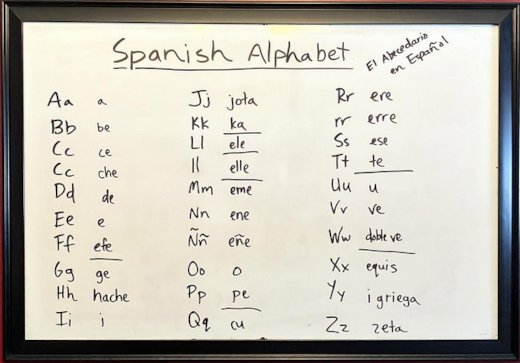 Spanish Alphabet
El Abecedario
en Español
Aa a
Bb be
Cc ce
Cc che
Dd de
Ee e
Ff efe
Gg ge
Hh hache
Ii i
Jj jota
Kk ka
Ll ele
ll elle
Mm eme
Nn ene
Ññ eñe
Oo o
Pp pe
Qq cu
Rr ere
rr erre
Ss ese
Tt te
Uu u
Vv ve
Ww doble ve
Xx equis
Yy i griega
Zz zeta